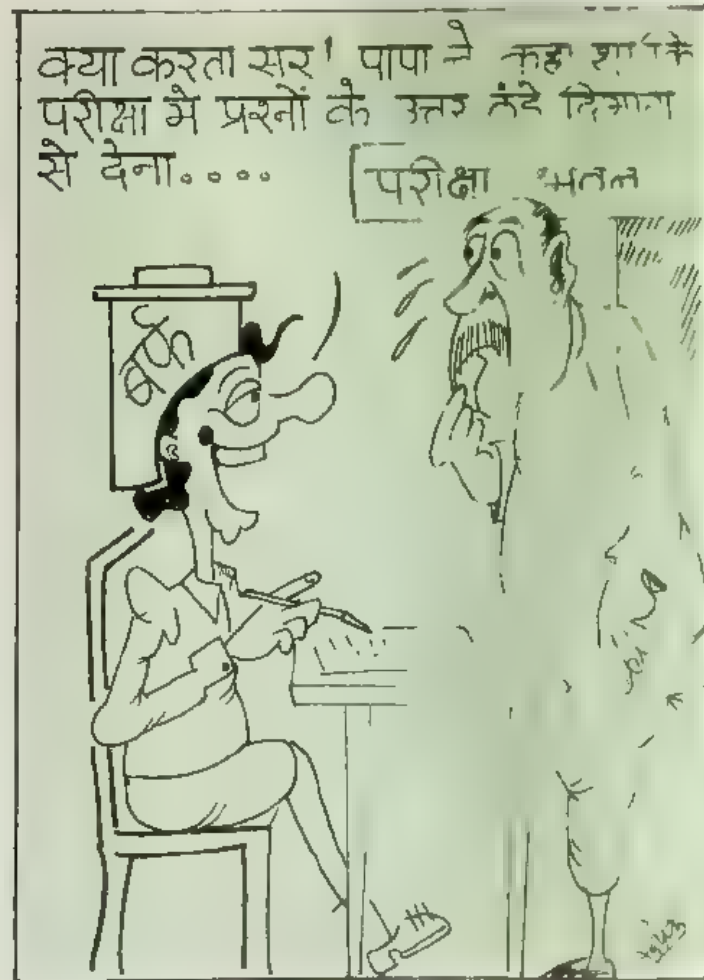 क्या करता सर' पापा ने कहा था कि
परीक्षा मे प्रश्नों के उत्तर ठंडे दिमाग
से देना....
परीक्षा
बर्फ